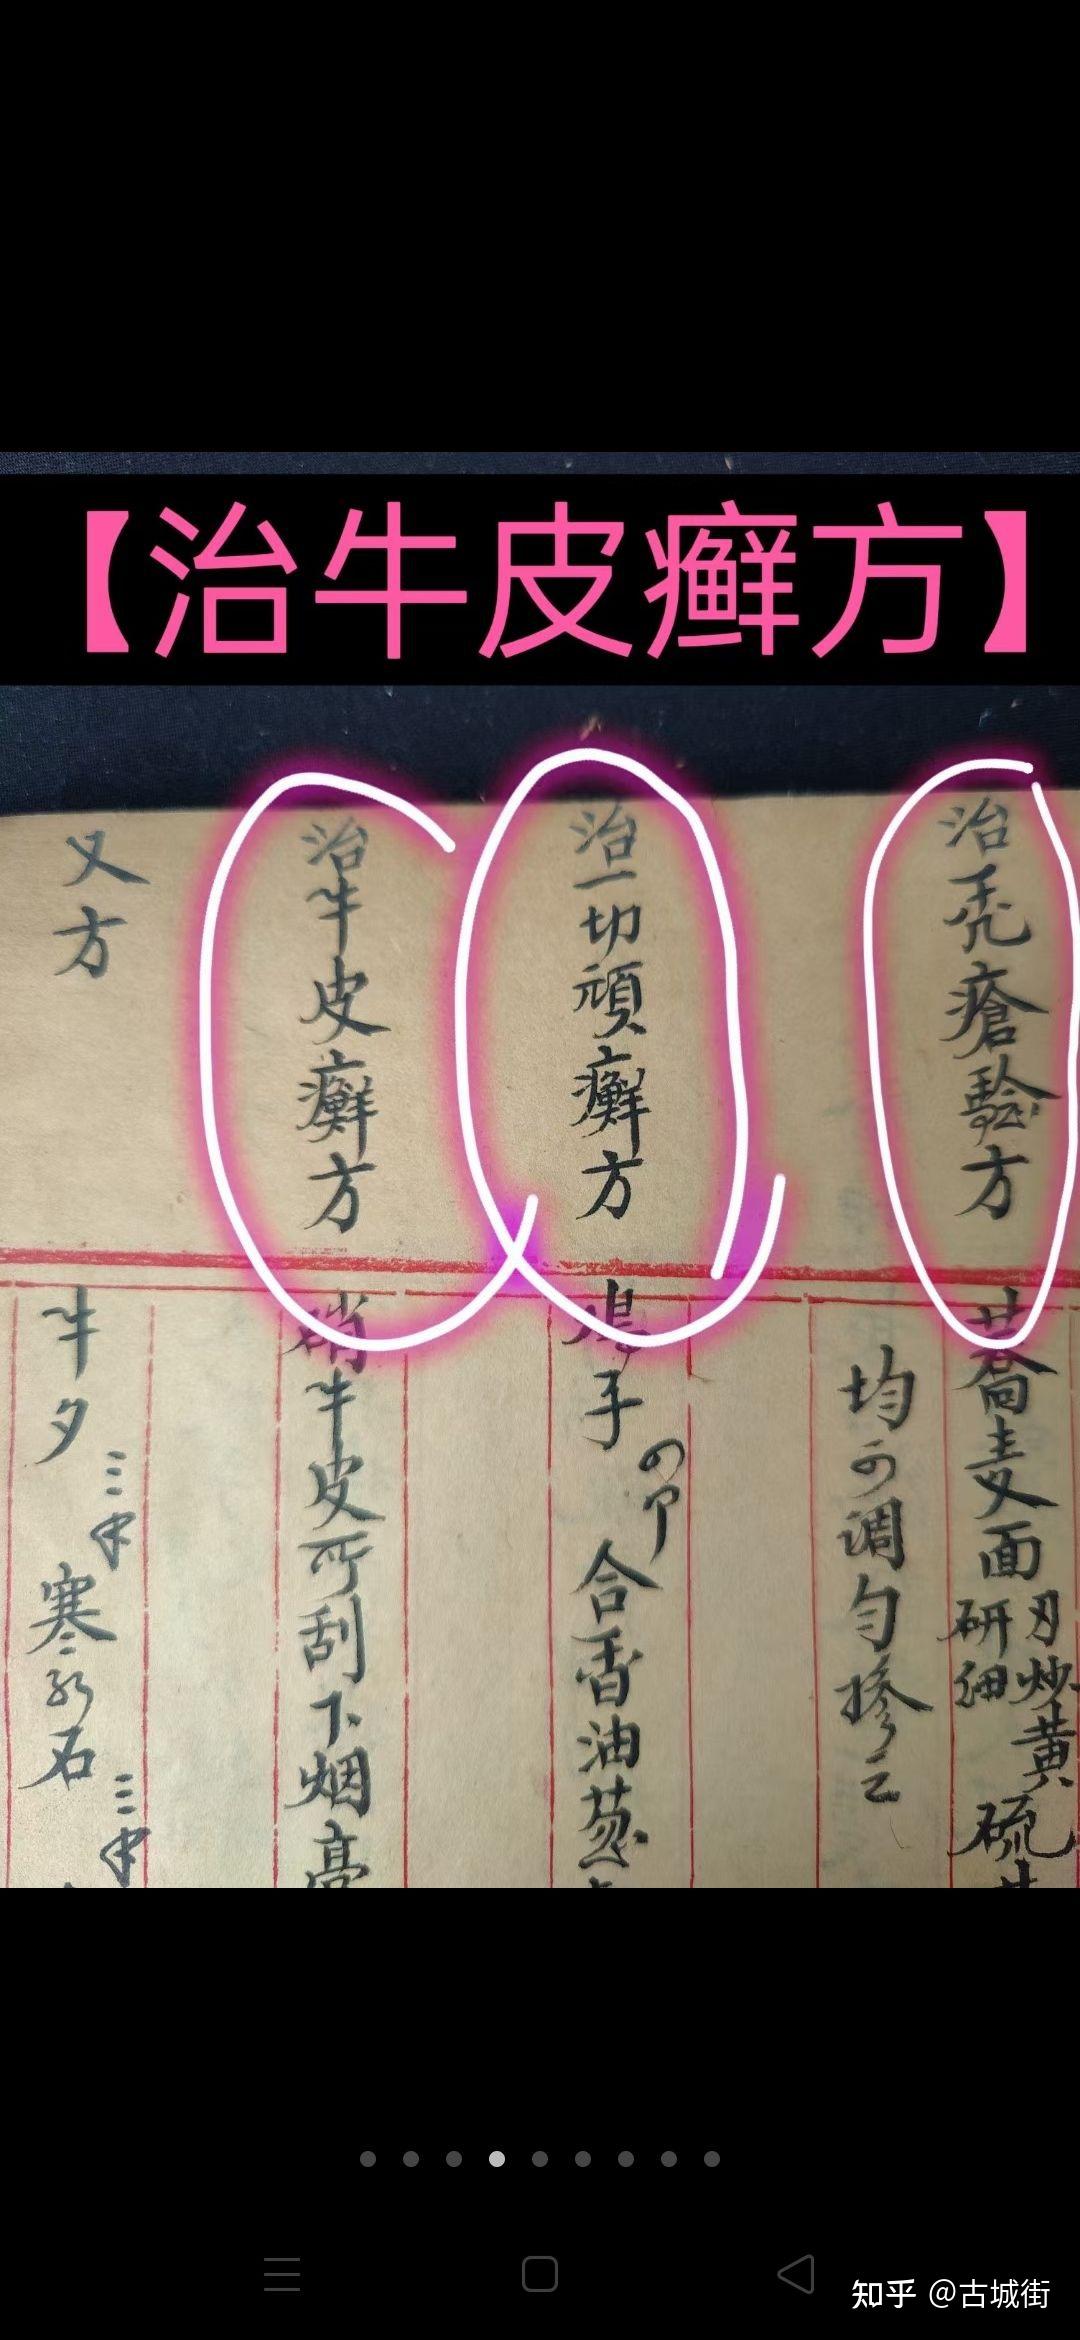 【治牛皮癣方】
治秃瘡驗方
蕎麦面
炒黄
研细
硫
均
调匀掺之
治一切頑癬方
子
合香油葱
治牛皮癬方
硝牛皮所刮下烟膏
又方
牛夕三
寒水石三
知乎 @古城街